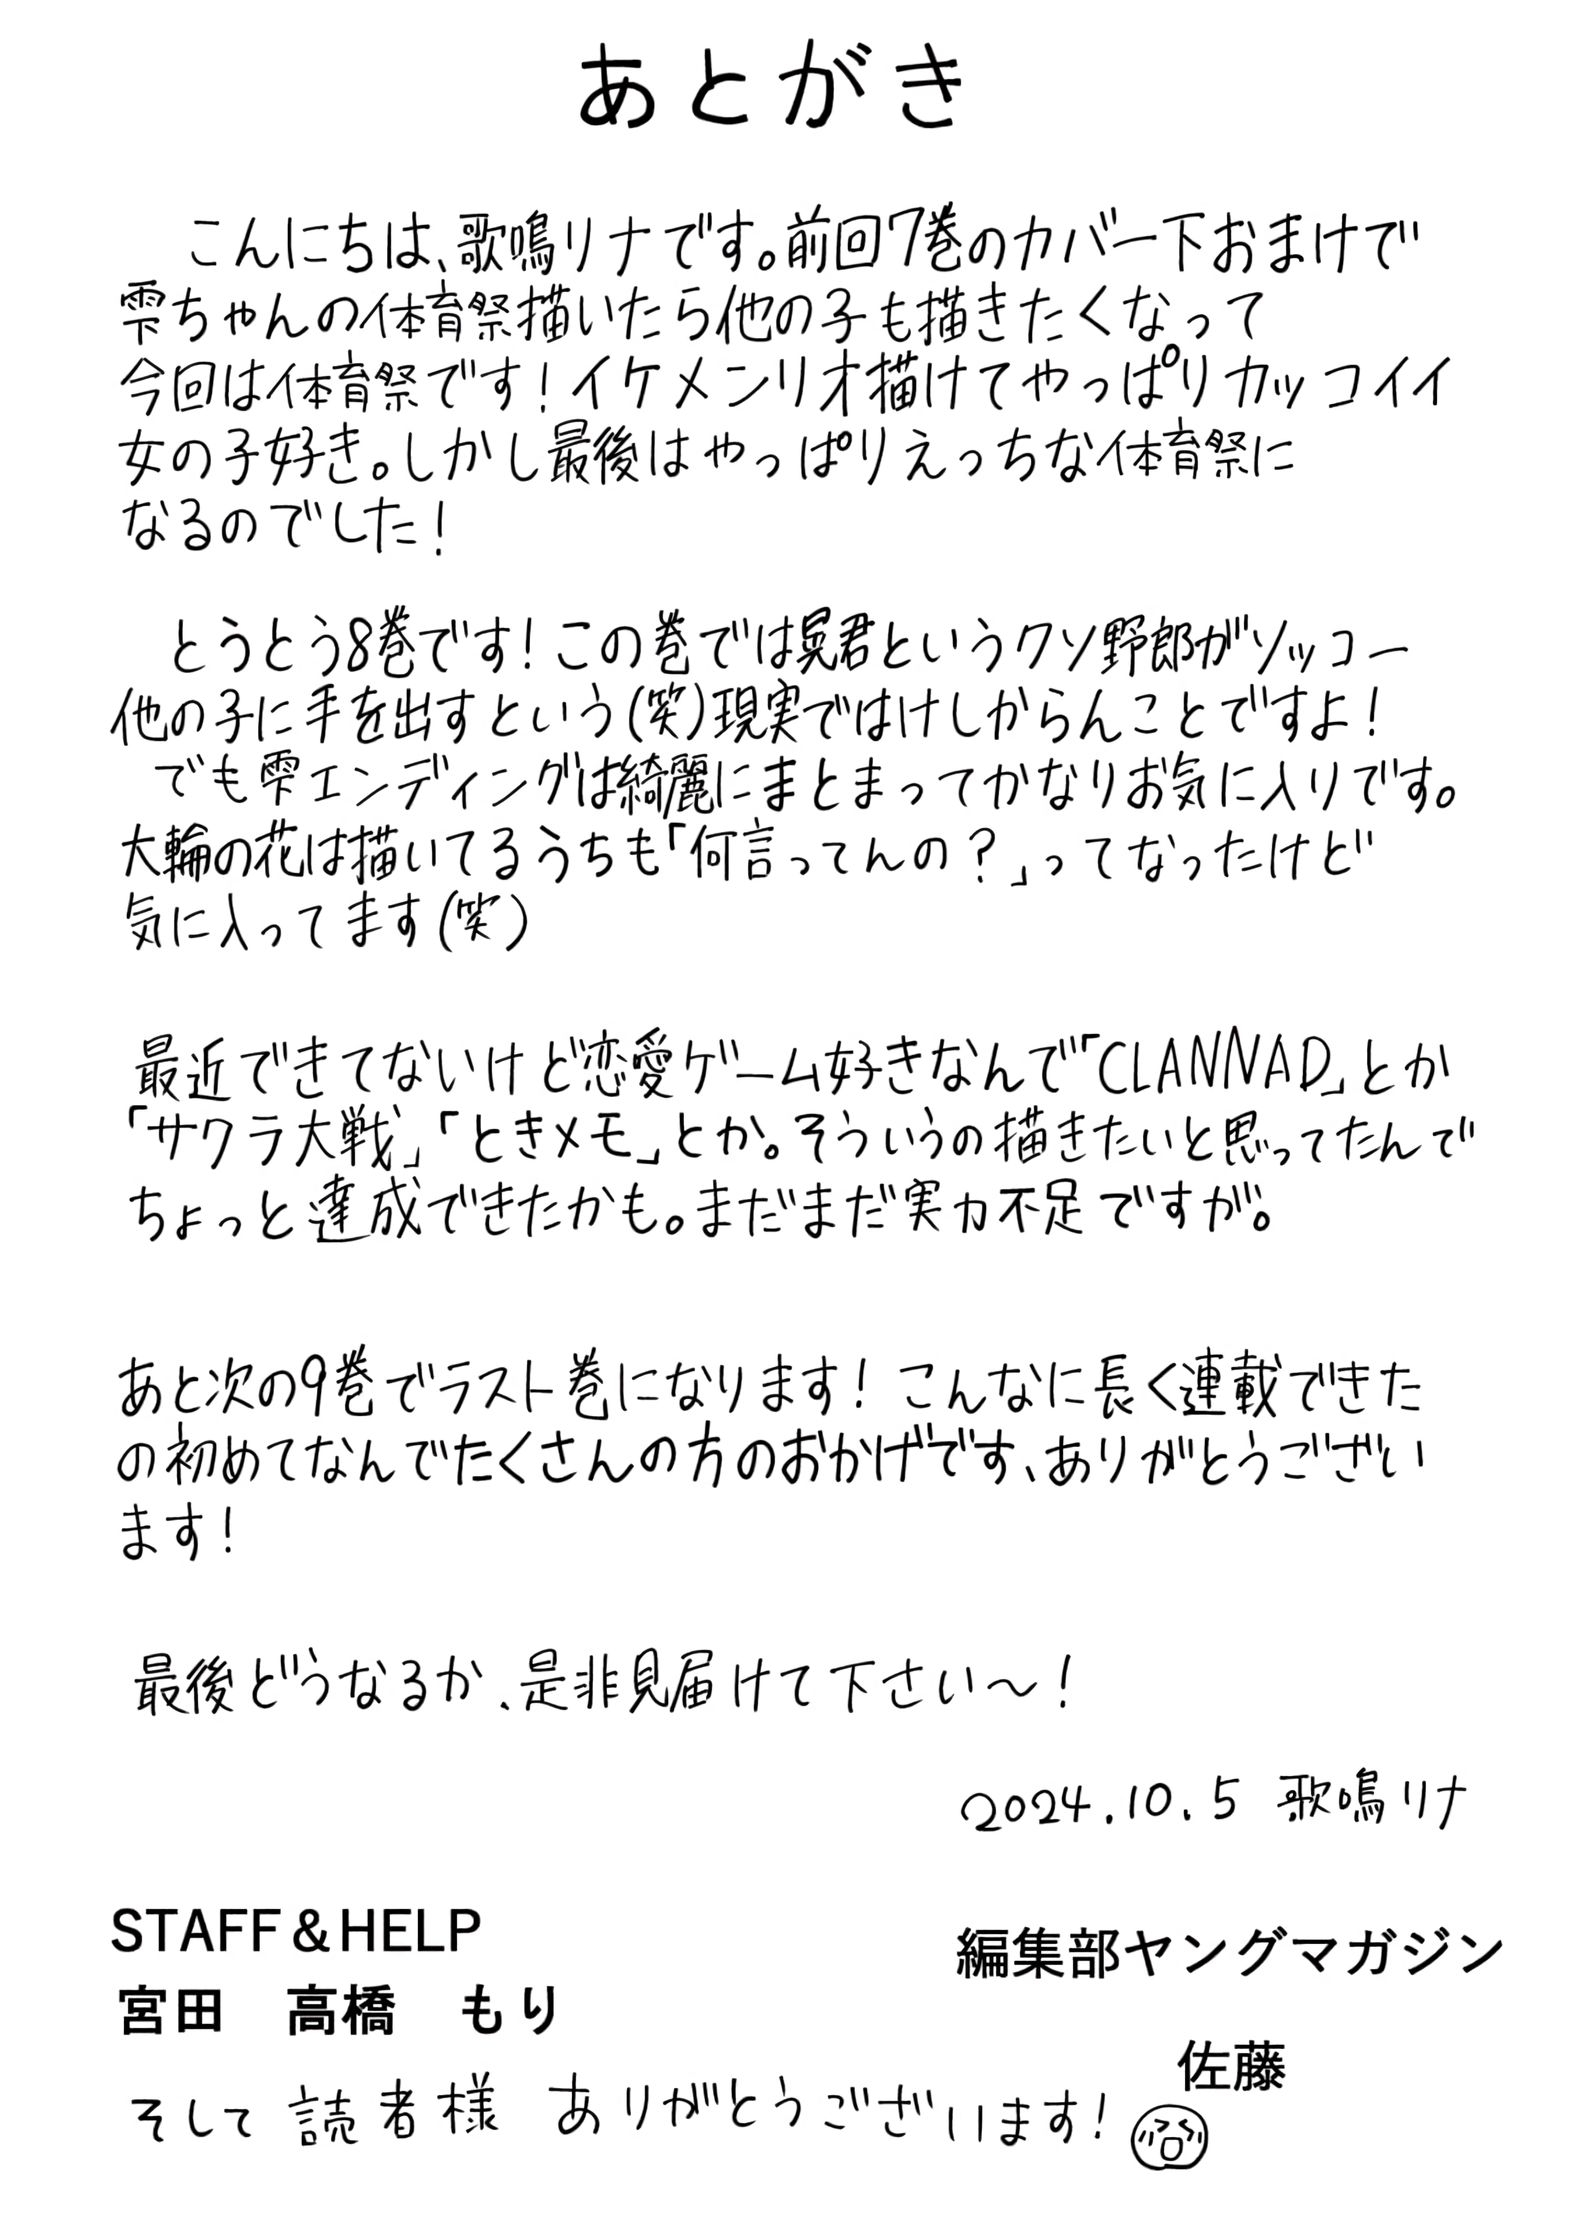 あとがき
こんにちは、歌鳴リナです。前回7巻のカバー下おまけで
雫ちゃんの体育祭描いたら他の子も描きたくなって
今回は体育祭です！イケメンリオ描けてやっぱりカッコイイ
女の子好き。しかし最後はやっぱりえっちな体育祭に
なるのでした！
とうとう8巻です！この巻では晃君というクソ野郎がソッコー
他の子に手を出すという(笑)現実ではけしからんことですよ！
でも雫エンディングは綺麗にまとまってかなりお気に入りです。
大輪の花は描いてるうちも「何言ってんの？」ってなったけど
気に入ってます(笑)
最近できてないけど恋愛ゲーム好きなんで「CLANNAD」とか
「サクラ大戦」「ときメモ」とか。そういうの描きたいと思ってたんで
ちょっと達成できたかも。まだまだ実力不足ですが。
あと次の9巻でラスト巻になります！こんなに長く連載できた
の初めてなんでたくさんの方のおかげです、ありがとうござい
ます！
最後どうなるか、是非見届けて下さい〜！
2024.10.5 歌鳴リナ
STAFF＆HELP
宮田　高橋　もり
編集部ヤングマガジン
佐藤
そして 読者様 ありがとうございます！